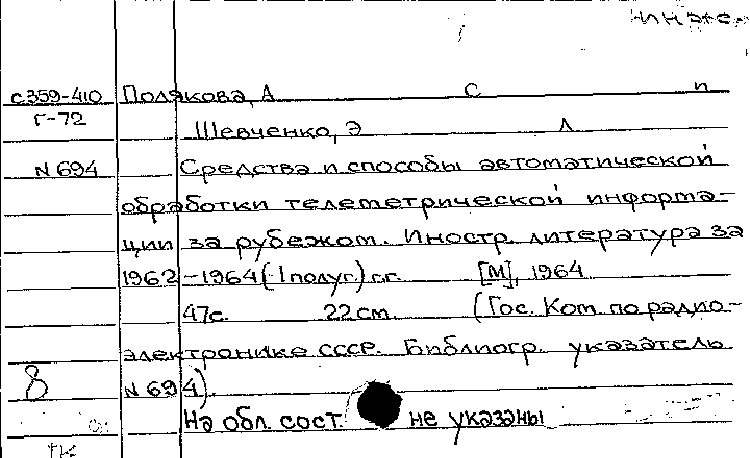 с359-410 Полякова, А С п
Г-72
Шевченко, Э Л
N 694 Средства и способы автоматической
обработки телеметрической информа-
ции за рубежом. Иностр. литература за
1962-1964 (-I полуг.) г.г. [М], 1964
47с. 22 см. (Гос. Ком. по радио-
электронике СССР. Библиогр. указатель
8 N 694).
На обл. сост. не указаны